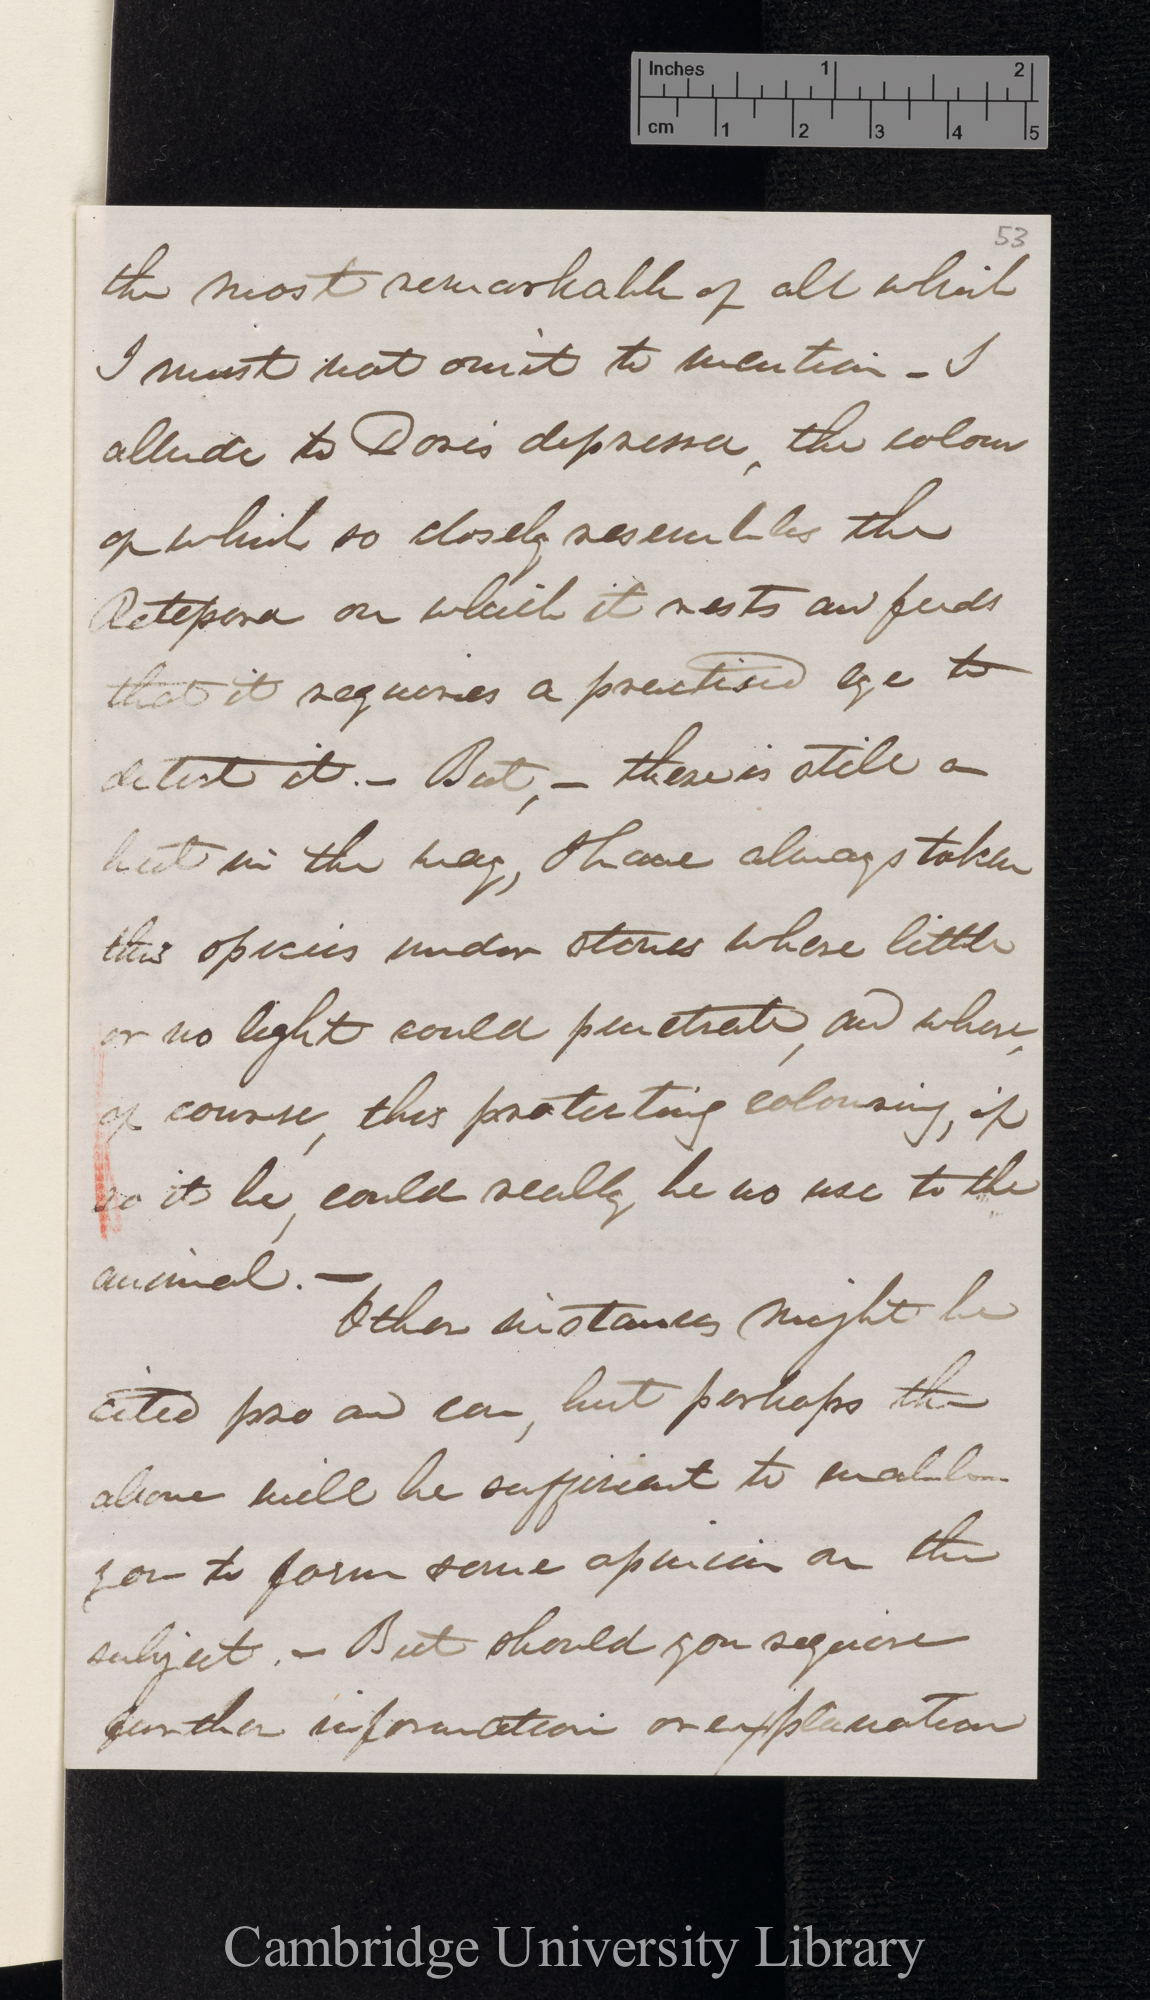 Inches 1 2
cm 1 2 3 4 5
53
the most remarkable of all which
I must not omit to mention - I
allude to Doris depressa, the colour
of which so closely resembles the
Retepora on which it rests and feeds
that it requires a practised eye to
detect it. - But, - there is still a
but in the way, I have always taken
this species under stones where little
or no light could penetrate, and where,
of course, this protecting colouring, if
so it be, could really be no use to the
animal. -
Other instances might be
cited pro and con, but perhaps the
above will be sufficient to enable
you to form some opinion on the
subject. - But should you require
further information or explanation
Cambridge University Library